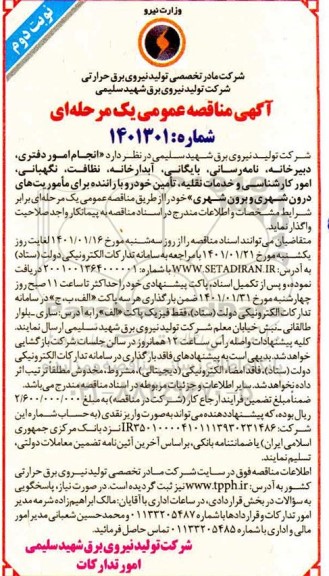 وزارت نیرو
نوبت دوم
شرکت مادر تخصصی تولید نیروی برق حرارتی
شرکت تولید نیروی برق شهید سلیمی
آگهی مناقصه عمومی یک مرحله‌ای
شماره: ۱۴۰۱۳۰۱
شرکت تولید نیروی برق شهید سلیمی در نظر دارد «انجام امور دفتری،
دبیرخانه، نامه‌رسانی، بایگانی، آبدارخانه، نظافت، نگهبانی،
امور کارشناسی و خدمات نقلیه، تأمین خودرو با راننده برای مأموریت‌های
درون شهری و برون شهری» خود را از طریق مناقصه عمومی یک مرحله‌ای برابر
شرایط و مشخصات و اطلاعات مندرج در اسناد مناقصه به پیمانکار واجد صلاحیت
واگذار نماید.
متقاضیان می‌توانند اسناد مناقصه را از روز سه‌شنبه مورخ ۱۴۰۱/۰۱/۱۶ لغایت روز
یکشنبه مورخ ۱۴۰۱/۰۱/۲۱ با مراجعه به سامانه تدارکات الکترونیکی دولت (ستاد)
به آدرس: WWW.SETADIRAN.IR با شماره: ۲۰۰۱۰۰۱۳۶۴۰۰۰۰۰۱ دریافت
نموده و پس از تکمیل اسناد، پاکت پیشنهادی خود را حداکثر تا ساعت ۱۱ صبح روز
چهارشنبه مورخ ۱۴۰۱/۰۱/۳۱ ضمن بارگذاری هر سه پاکت «الف، ب، ج» در سامانه
تدارکات الکترونیکی دولت (ستاد)، فقط فیزیک پاکت «الف» را به آدرس: ساری ـ بلوار
طالقانی ـ نبش خیابان معلم شرکت تولید نیروی برق شهید سلیمی ارسال نمایند.
کلیه پیشنهادات واصله رأس ساعت ۱۲ همان روز در سالن جلسات شرکت بازگشایی
خواهد شد. بدیهی است به پیشنهادهای فاقد بارگذاری در سامانه تدارکات الکترونیکی
دولت (ستاد)، فاقد امضاء الکترونیکی (دیجیتالی)، مشروط، مخدوش مطلقاً ترتیب اثر
داده نخواهد شد. سایر اطلاعات و جزئیات مربوطه در اسناد مناقصه مندرج می‌باشد.
ضمناً مبلغ تضمین فرآیند ارجاع کار (شرکت در مناقصه)، به مبلغ ۲/۶۰۰/۰۰۰/۰۰۰
ریال بوده، که پیشنهاددهنده می‌تواند به صورت واریز نقدی (به حساب شماره این
شرکت به شماره: نزد بانک مرکزی جمهوری
اسلامی ایران) یا ضمانتنامه بانکی، براساس آخرین آئین‌نامه تضمین معاملات دولتی،
تسلیم نمایند.
اطلاعات مناقصه فوق در سایت شرکت مادر تخصصی تولید نیروی برق حرارتی
کشور به آدرس: www.tpph.ir نیز ثبت گردیده است. در صورت نیاز، پاسخگویی
به سؤالات در بخش قراردادی، در ساعات اداری با آقایان: مالک ابراهیم‌زاده شرمه مدیر
امور تدارکات و قراردادها با شماره ۰۱۱۳۳۲۰۵۴۸۷ و محمدحسین شعبانی مدیر امور
مالی و اداری با شماره ۰۱۱۳۳۲۰۵۴۸۵ تماس حاصل فرمائید.
شرکت تولید نیروی برق شهید سلیمی
امور تدارکات